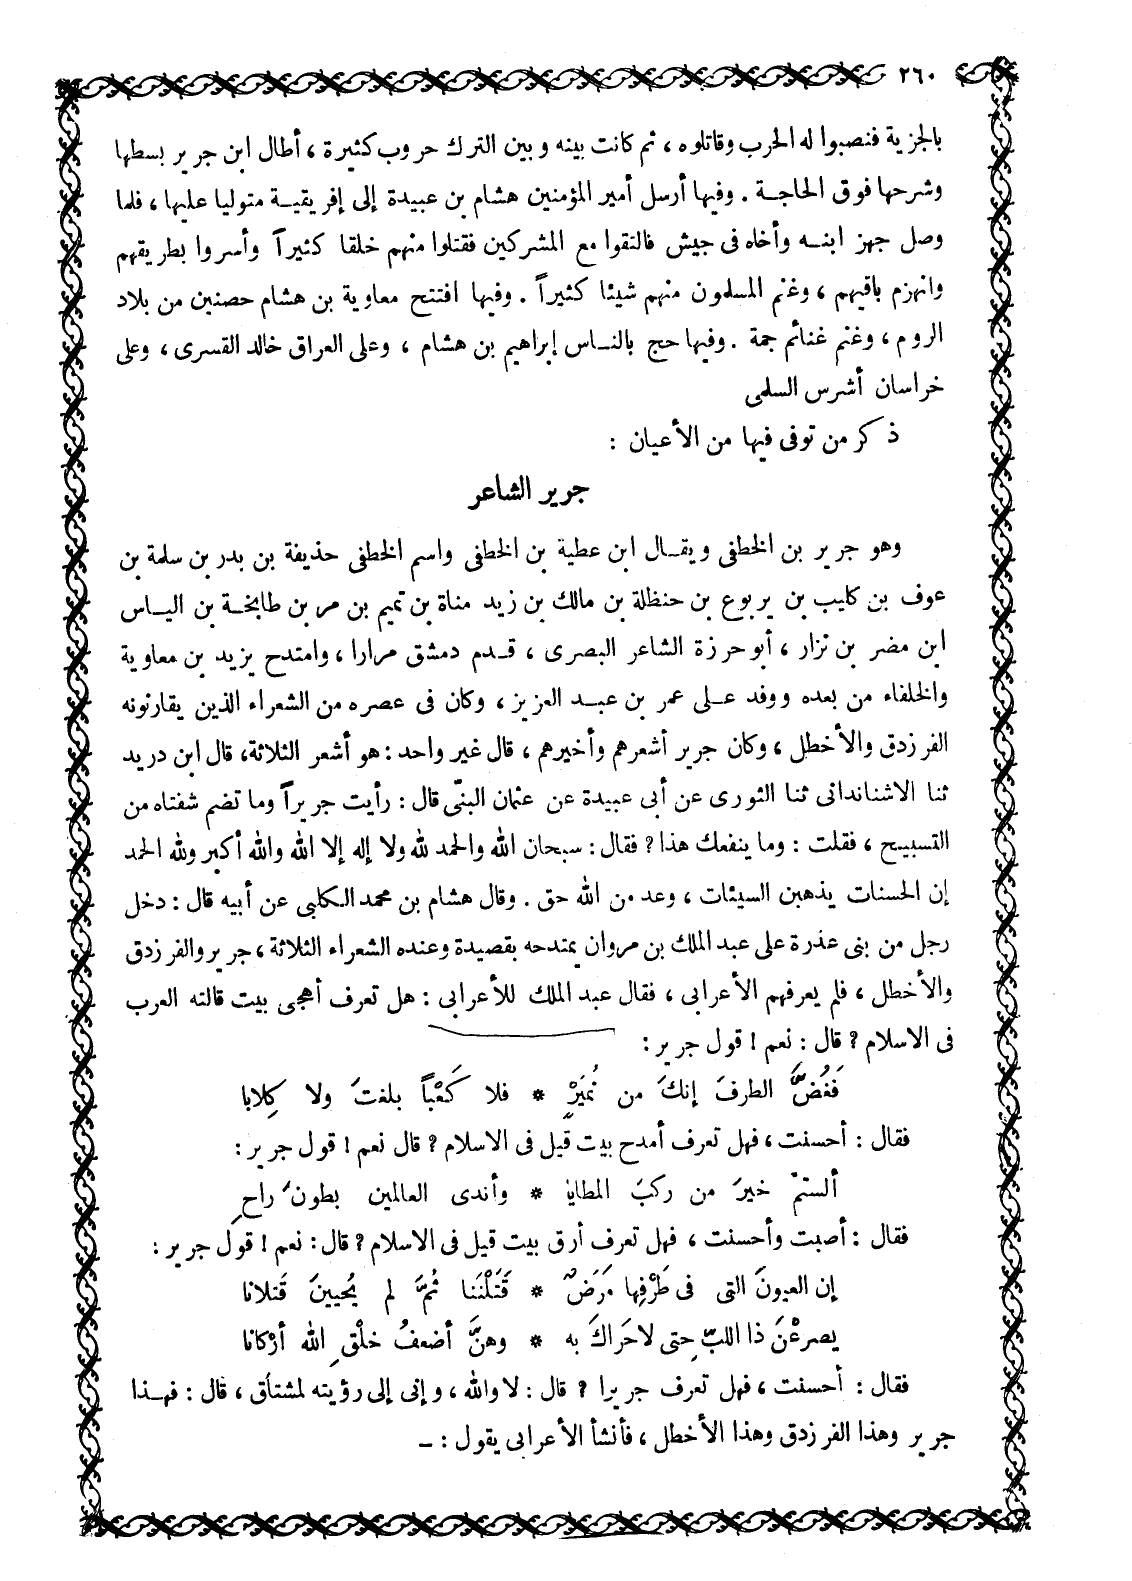 ٢٦٠
بالجزية فنصبوا له الحرب وقاتلوه ، ثم كانت بينه وبين الترك حروب كثيرة ، أطال ابن جرير بسطها
وشرحها فوق الحاجة . وفيها أرسل أمير المؤمنين هشام بن عبيدة إلى إفريقية متوليا عليها ، فلما
وصل جهز ابنه وأخاه فى جيش فالتقوا مع المشركين فقتلوا منهم خلقا كثيراً وأسروا بطريقهم
وانهزم باقيهم ، وغنم المسلمون منهم شيئا كثيراً . وفيها افتتح معاوية بن هشام حصنين من بلاد
الروم ، وغنم غنائم جمة . وفيها حج بالناس إبراهيم بن هشام ، وعلى العراق خالد القسرى ، وعلى
خراسان أشرس السلمى
ذكر من توفى فيها من الأعيان :
جرير الشاعر
وهو جرير بن الخطفى ويقال ابن عطية بن الخطفى واسم الخطفى حذيفة بن بدر بن سلمة بن
عوف بن كليب بن يربوع بن حنظلة بن مالك بن زيد مناة بن تميم بن مر بن طابخة بن الياس
ابن مضر بن نزار ، أبو حرزة الشاعر البصرى ، قدم دمشق مرارا ، وامتدح يزيد بن معاوية
والخلفاء من بعده ووفد على عمر بن عبد العزيز ، وكان فى عصره من الشعراء الذين يقارنونه
الفرزدق والأخطل ، وكان جرير أشعرهم وأخيرهم ، قال غير واحد : هو أشعر الثلاثة، قال ابن دريد
ثنا الاشناندانى ثنا الثورى عن أبى عبيدة عن عثمان البنّى قال : رأيت جريراً وما تضم شفتاه من
التسبيح ، فقلت : وما ينفعك هذا ؟ فقال : سبحان الله والحمد لله ولا إله إلا الله والله أكبر ولله الحمد
إن الحسنات يذهبن السيئات ، وعد من الله حق . وقال هشام بن محمد الكلبى عن أبيه قال : دخل
رجل من بنى عذرة على عبد الملك بن مروان يمتدحه بقصيدة وعنده الشعراء الثلاثة ، جرير والفرزدق
والأخطل ، فلم يعرفهم الأعرابى ، فقال عبد الملك للأعرابى : هل تعرف أهجى بيت قالته العرب
فى الاسلام ؟ قال : نعم ! قول جرير :
فَغُضَّ الطرفَ إنكَ من نُمَيْرٍ * فلا كَعْباً بلغتَ ولا كِلابا
فقال : أحسنت ، فهل تعرف أمدح بيت قيل فى الاسلام ؟ قال نعم ! قول جرير :
ألستمْ خيرَ من ركبَ المطايا * وأندى العالمين بطونَ راحِ
فقال : أصبت وأحسنت ، فهل تعرف أرق بيت قيل فى الاسلام ؟ قال : نعم ! قول جرير :
إن العيونَ التى فى طَرْفِها مَرَضٌ * قَتَلْنَنا ثُمَّ لم يُحيينَ قَتلانا
يصرعْنَ ذا اللبِّ حتى لا حَراكَ به * وهنَّ أضعفُ خلْقِ الله أرْكانا
فقال : أحسنت ، فهل تعرف جريرا ؟ قال : لا والله ، وإنى إلى رؤيته لمشتاق ، قال : فهذا
جرير وهذا الفرزدق وهذا الأخطل ، فأنشأ الأعرابى يقول : –